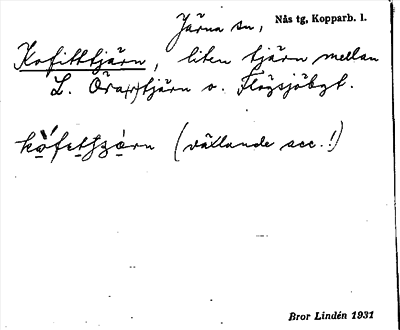 Järna sn, Nås tg, Kopparb. l.
Kofittjärn, liten tjärn mellan
L. Öra(r)tjärn o. Flögsjöbgt.
(vällande acc.!)
Bror Lindén 1931